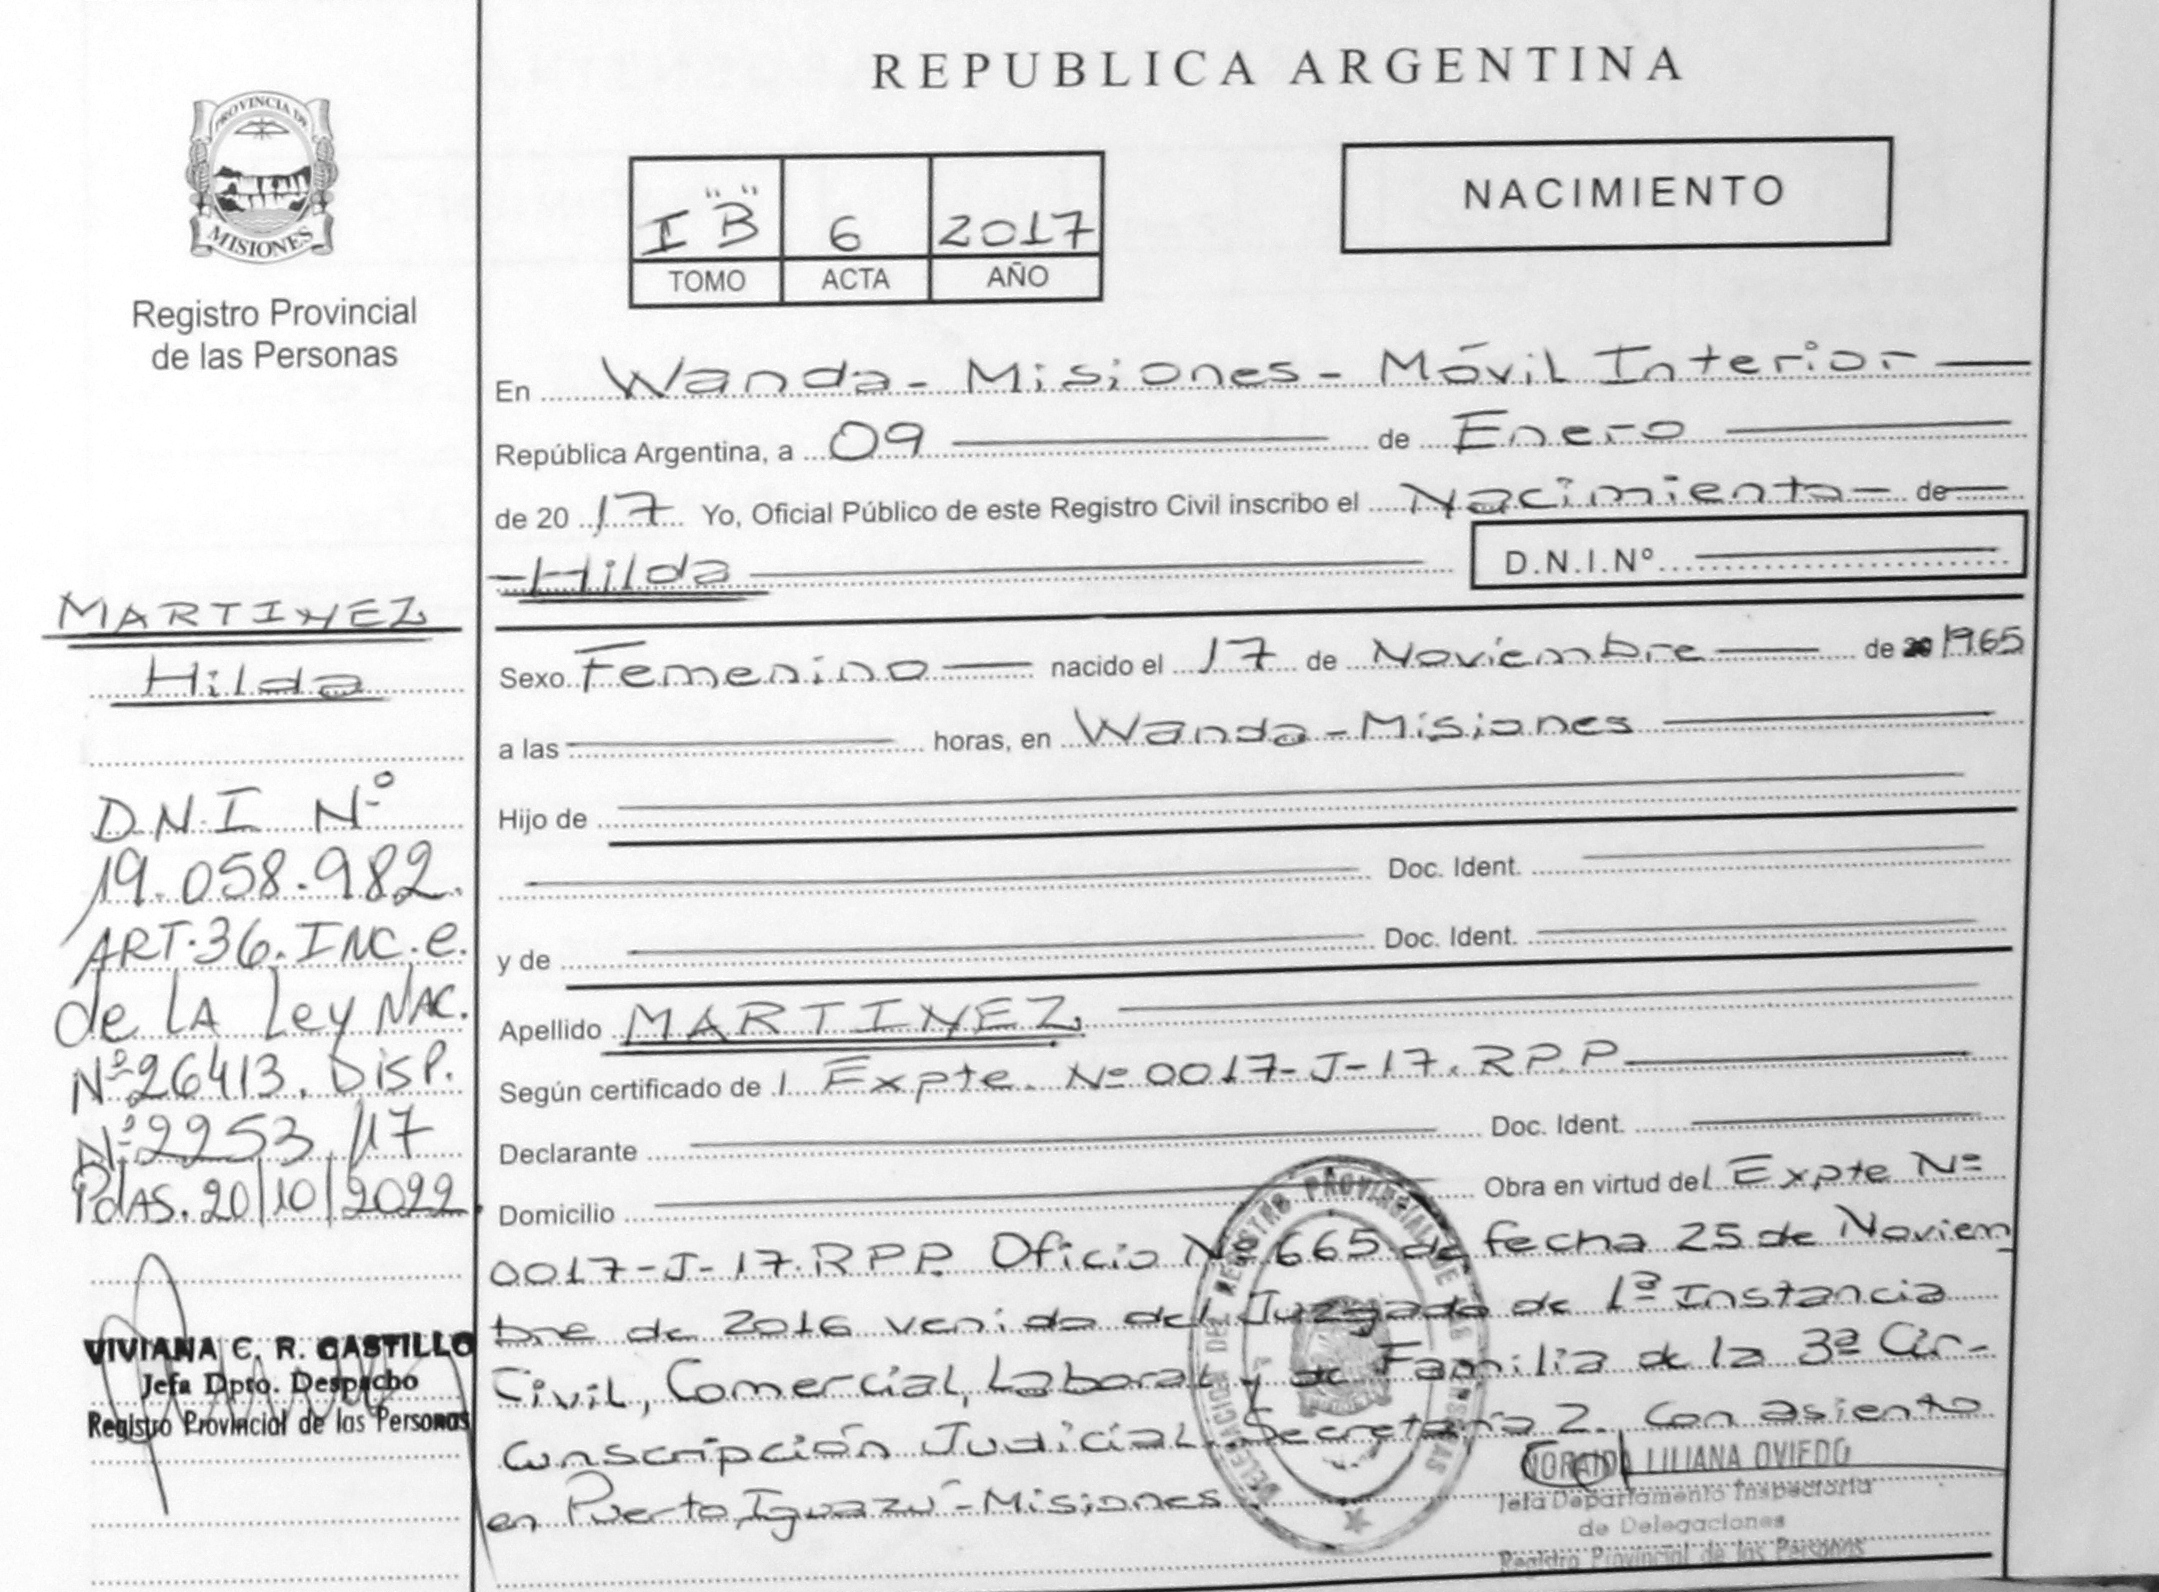 PROVINCIA DE
MISIONES
Registro Provincial
de las Personas
MARTINEZ
Hilda
D.N.I Nº
19.058.982.
ART.36.INC.e.
de LA Ley NAC.
Nº26413. DISP.
Nº2253/17
PdAS. 20/10/2022.
VIVIANA C. R. CASTILLO
Jefa Dpto. Despacho
Registro Provincial de las Personas
REPUBLICA ARGENTINA
I "B" 6 2017
TOMO ACTA AÑO
NACIMIENTO
En Wanda - Misiones - Móvil Interior
República Argentina, a 09 de Enero
de 20 17 Yo, Oficial Público de este Registro Civil inscribo el Nacimiento de
Hilda D.N.I.Nº
Sexo Femenino nacido el 17 de Noviembre de 1965
a las horas, en Wanda - Misiones
Hijo de
Doc. Ident.
y de Doc. Ident.
Apellido MARTINEZ
Según certificado de l Expte. Nº 0017-J-17.RP.P
Declarante Doc. Ident.
Domicilio Obra en virtud del Expte Nº
0017-J-17.RPP. Oficio Nº 665 de fecha 25 de Noviem
bre de 2016 venido del Juzgado de 1ª Instancia
Civil, Comercial, Laboral y de Familia de la 3ª Cir-
cunscripción Judicial. Secretaría 2. Con asiento
en Puerto Iguazú - Misiones
DELEGACION DEL REGISTRO PROVINCIAL DE LAS PERSONAS
NORAIDA LILIANA OVIEDO
Jefa Departamento Inspectoría
de Delegaciones
Registro Provincial de las Personas